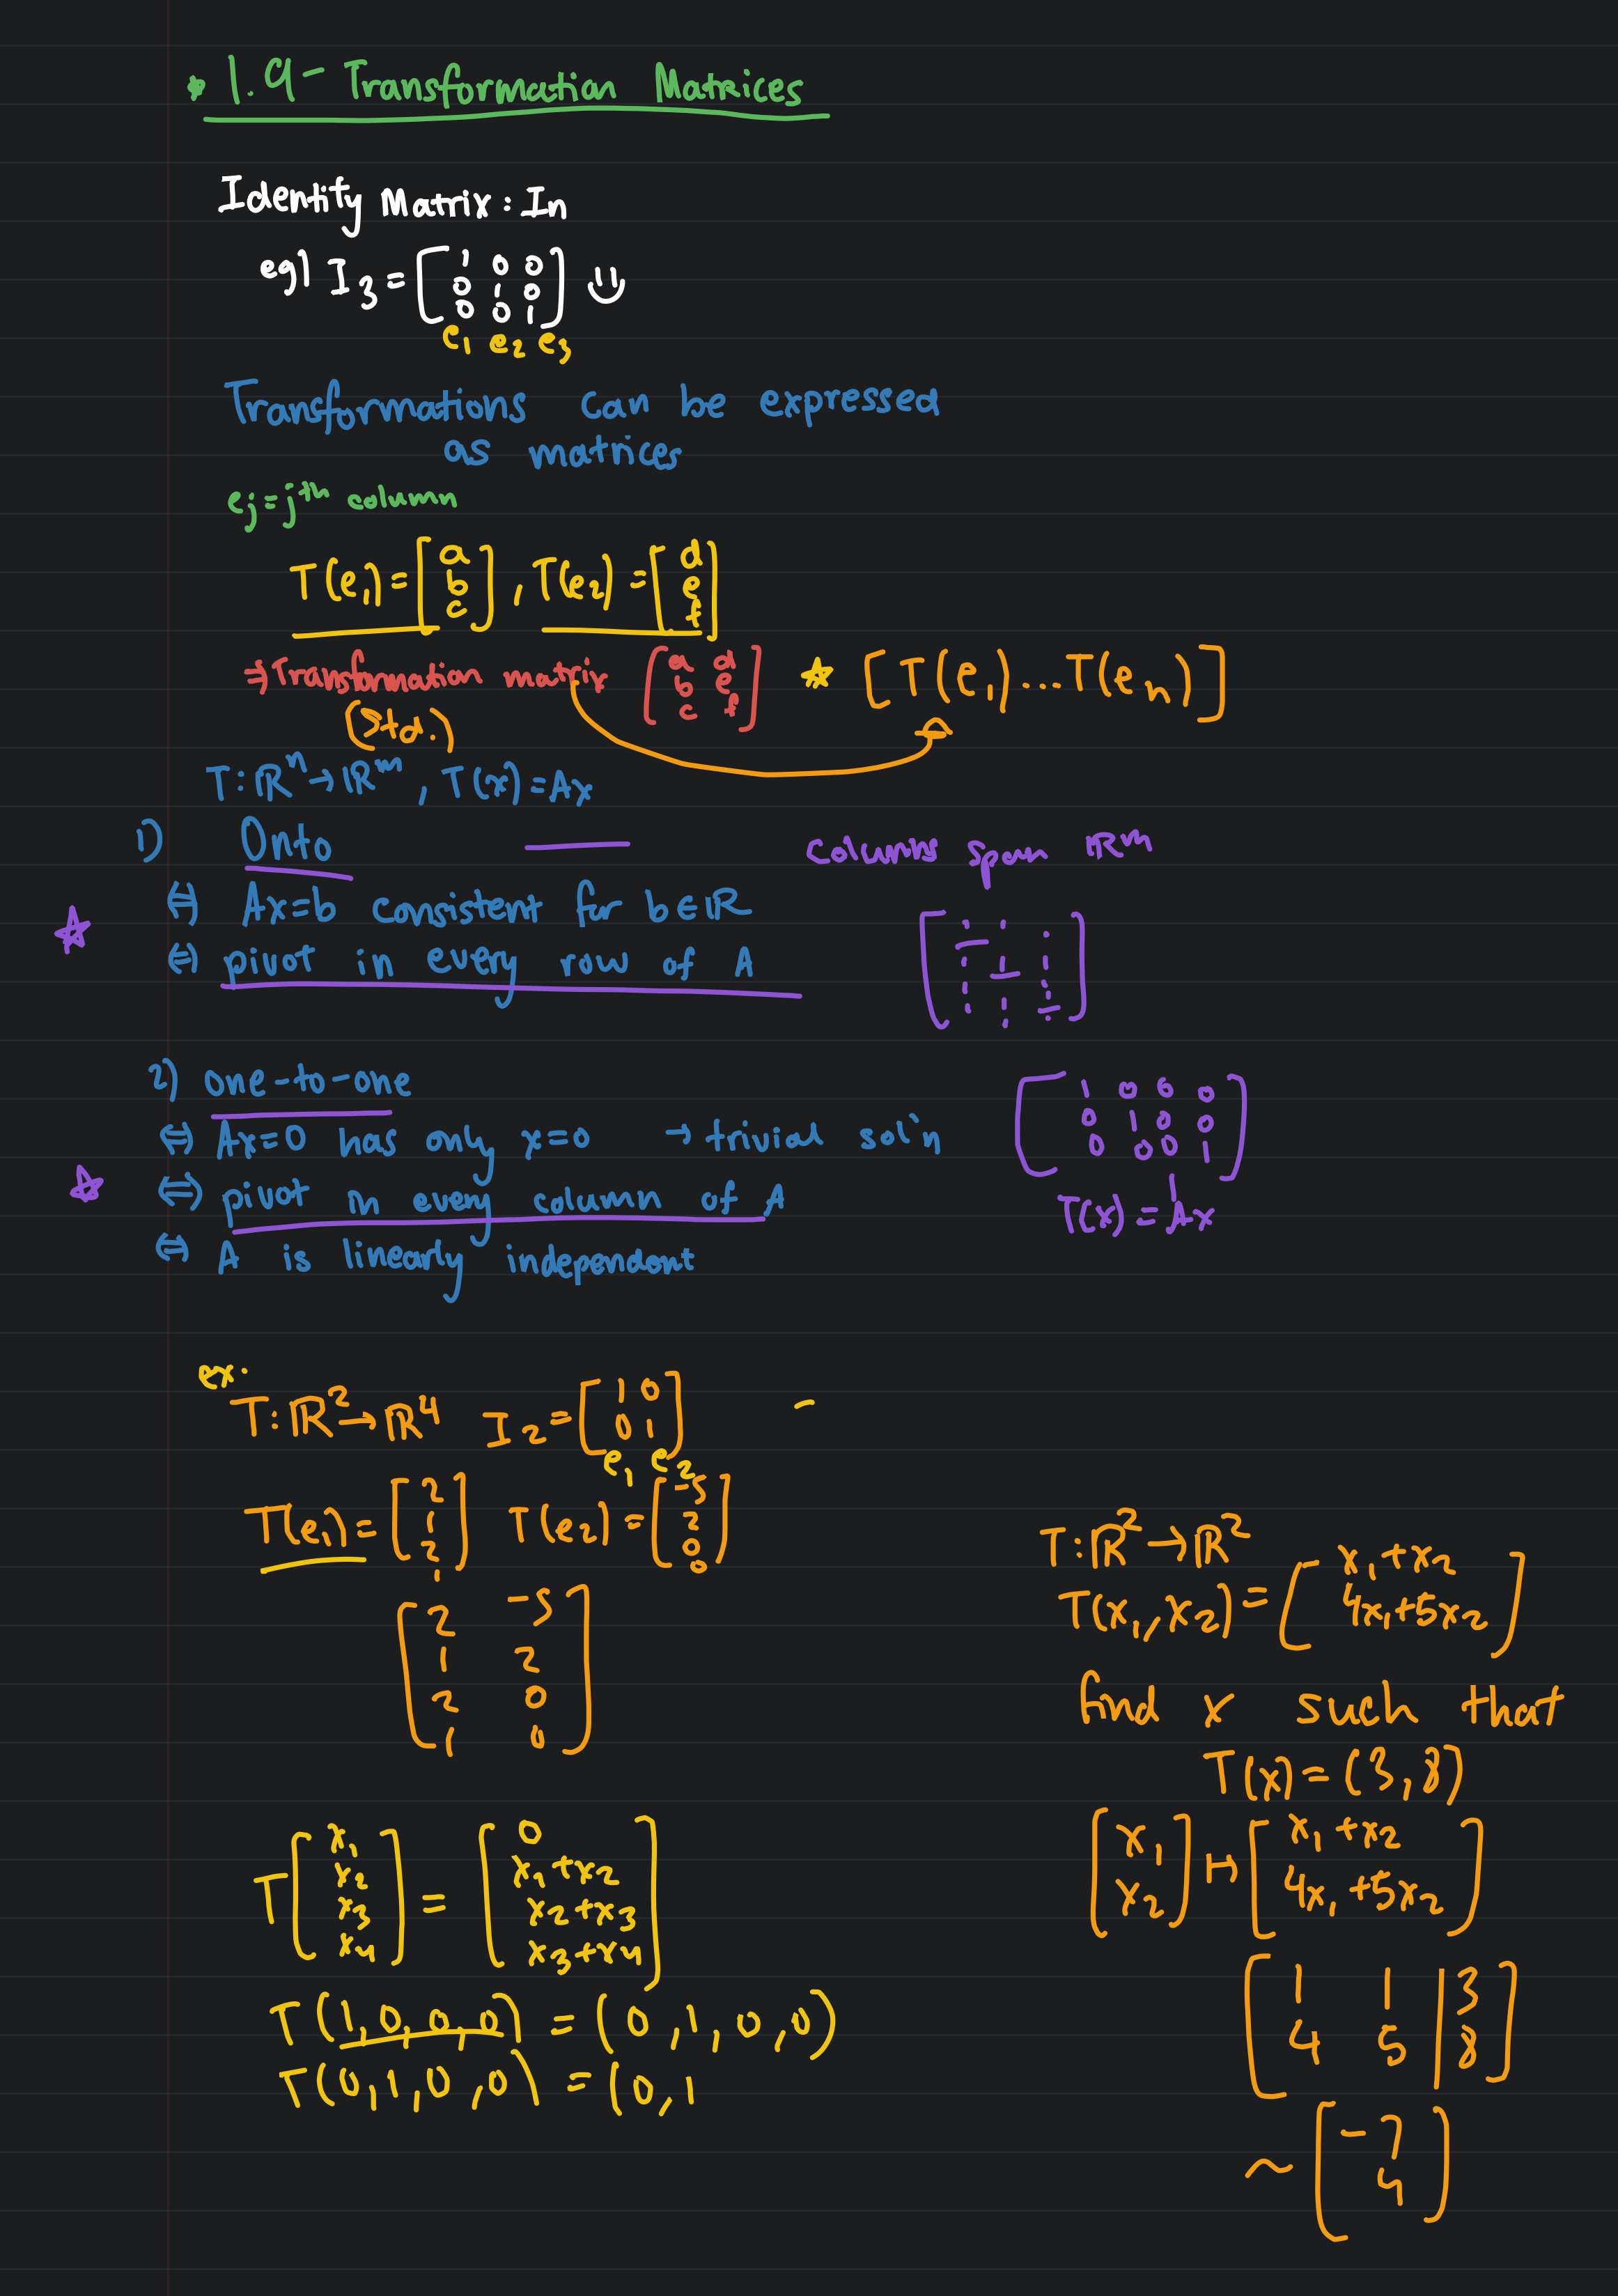 * 1.9 - Transformation Matrices
Identity Matrix: In
eg) I3 = [1 0 0
0 1 0
0 0 1] :)
e1 e2 e3
Transformations can be expressed
as matrices
ej = jth column
T(e1) = [a b c], T(e2) = [d e f]
⇒ Transformation matrix [a d
b e
c f] ☆ [T(e1)...T(en)]
(Std.)
T: ℝn → ℝm, T(x) = Ax
1) Onto — columns span ℝm
⇔ Ax=b consistent for b∈ℝ
☆ ⇔ pivot in every row of A
2) one-to-one
⇔ Ax=0 has only x=0 → trivial sol'n
☆ ⇔ pivot in every column of A
⇔ A is linearly independent
[1 0 0 0
0 1 0 0
0 0 0 1]
T(x) = Ax
ex.
T: ℝ2 → ℝ4 I2 = [1 0
0 1]
e1 e2
T(e1) = [2 1 2 1] T(e2) = [-5 2 0 0]
[2 -5
1 2
2 0
1 0]
T[x1 x2 x3 x4] = [0
x1+x2
x2+x3
x3+x4]
T(1,0,0,0) = (0,1,0,0)
T(0,1,0,0) = (0,1
T: ℝ2 → ℝ2
T(x1, x2) = [x1+x2
4x1+5x2]
find x such that
T(x) = (3,8)
[x1
x2] ↦ [x1+x2
4x1+5x2]
[1 1 | 3
4 5 | 8]
~ [-7
4]